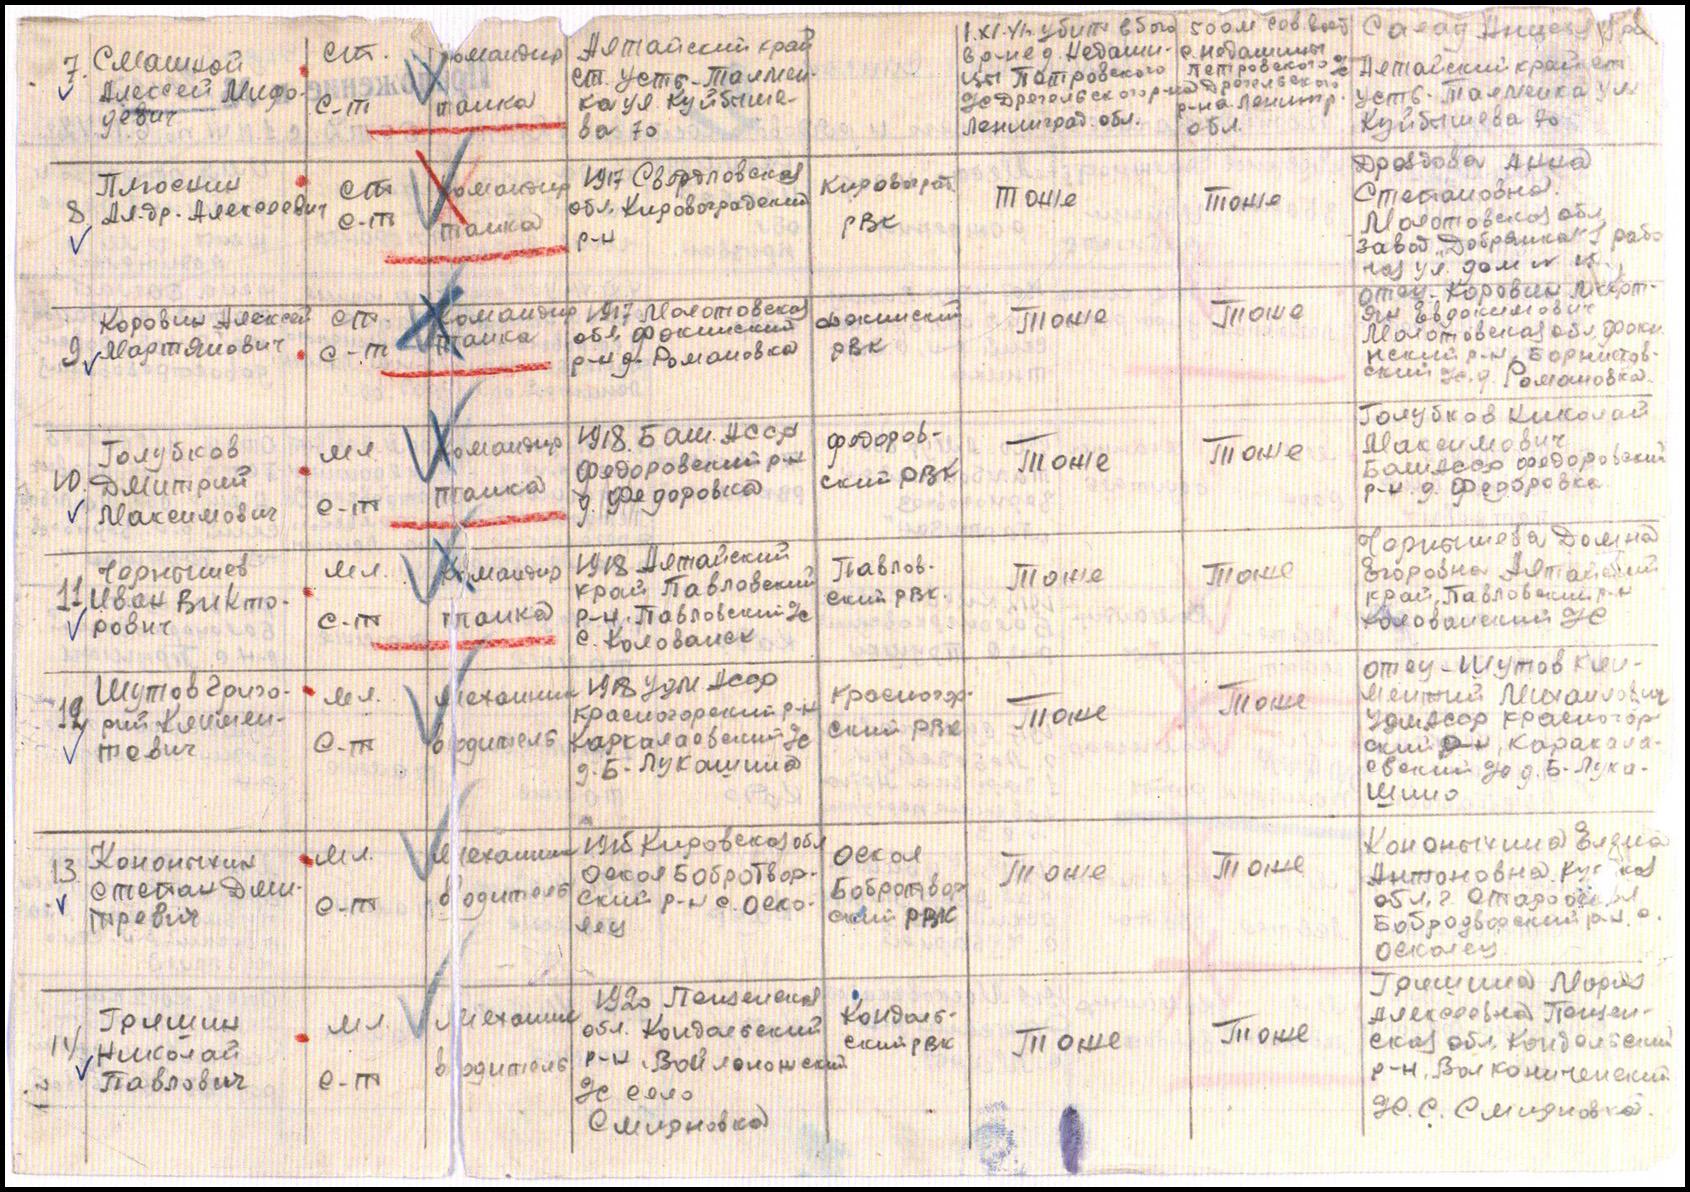 7.
Смашной
Алексей Мифо-
девич
ст.
с-т
командир
танка
Алтайский край
ст. Усть-Талмен-
ка ул. Куйбыше-
ва 70
убит в бою
в р-не д. Недаши-
цы Петровского
Ленинград. обл.
500 м сев. вост.
с. Недашицы
Петровского
р-на Ленингр.
обл.
Алтайский край ст.
Усть-Талменка ул
Куйбышева 70
8
Плюснин
Ал-др. Алексеевич
ст
с-т
командир
танка
1917 Свердловская
обл. Кировоградский
р-н
Кировоград.
РВК
Тоже
Тоже
Дроздова Анна
Степановна.
Молотовская обл.
завод Добрянка 1 рабо
чая ул. дом №
9
Коровин Алексей
Мартянович
ст.
с-т
командир
танка
1917 Молотовская
обл. Фокинский
р-н д. Романовка
Фокинский
РВК
Тоже
Тоже
отец-Коровин Март-
ян Евдокимович
Молотовская обл. Фоки-
нский р-н,
ский с/с. д. Романовка.
10.
Голубков
Дмитрий
Максимович
мл.
с-т
командир
танка
1918. Баш. АССР
Федоровский р-н
д. Федоровка
Федоров-
ский РВК
Тоже
Тоже
Голубков Николай
Максимович
Баш АССР Федоровский
р-н. д. Федоровка.
11
Чернышев
Иван Викто-
рович
мл.
с-т
командир
танка
1918 Алтайский
край Павловский
р-н. Павловский с/с
с. Колованск
Павлов-
ский РВК.
Тоже
Тоже
Чернышева Домна
Егоровна Алтайский
край, Павловский р-н
Колованский с/с
12
Шутов Григо-
рий Климен-
тович
мл.
с-т
Механик
водитель
1918 Удм АССР
Красногорский р-н
Каркалаевский с/с
д. Б-Лукашино
Красногор-
ский РВК
Тоже
Тоже
отец-Шутов Кли-
ментий Михайлович
Удм АССР Красногор
ский р-н, Каракала-
евский с/с д. Б-Лука-
шино
13
Кононыхин
Степан Дми-
тревич
мл.
с-т
Механик
водитель
1915 Кировская обл
Оскол Бобротвор-
ский р-н с. Оско-
лец
Оскол
Бобротвор
ский РВК
Тоже
Тоже
Кононыхина Елена
Антоновна
обл. г. Старооскол
Бобродворский р-н. с.
Осколец
14
Гришин
Николай
Павлович
мл.
с-т
Механик
водитель
1920 Пензенская
обл. Кондальский
р-н,
с/с село
Смирновка
Кондаль-
ский РВК
Тоже
Тоже
Гришина Мария
Алексеевна Пензен-
ская обл. Кондальский
р-н.
с/с. с. Смирновка.